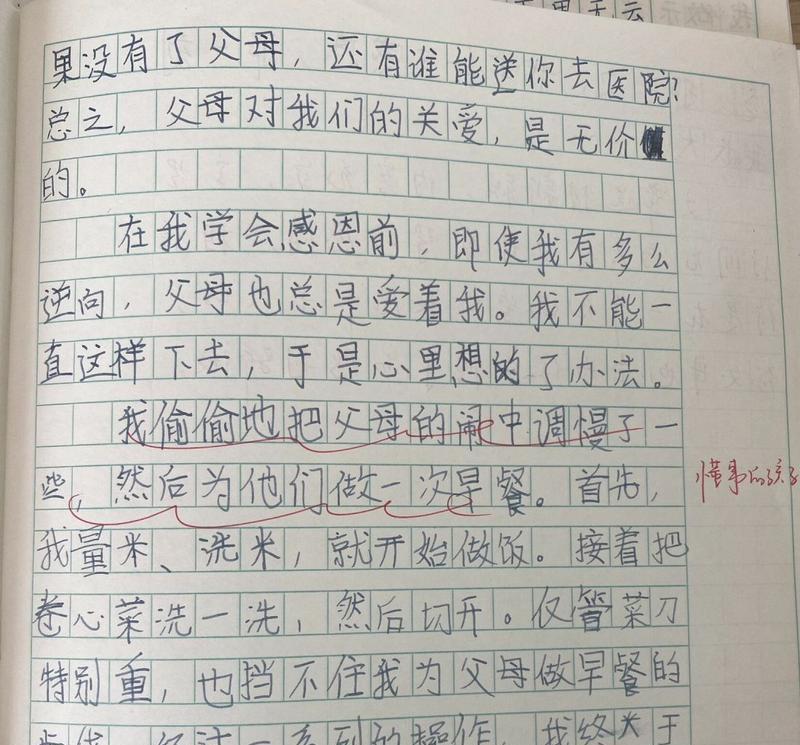 果没有了父母，还有谁能送你去医院？
总之，父母对我们的关爱，是无价
的。
在我学会感恩前，即使我有多么
逆向，父母也总是爱着我。我不能一
直这样下去，于是心里想的了办法。
我偷偷地把父母的闹中调慢了一
些，然后为他们做一次早餐。首先，
懂事的孩子
我量米、洗米，就开始做饭。接着把
卷心菜洗一洗，然后切开。仅管菜刀
特别重，也挡不住我为父母做早餐的
步伐。经过一系列的操作，我终于